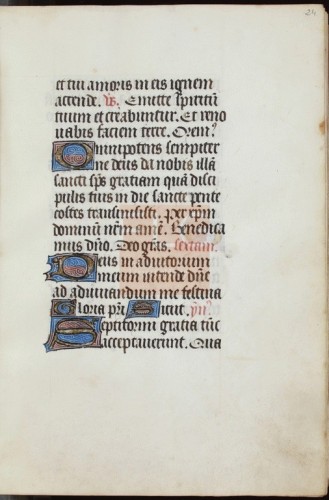 24
et tui amoris in eis ignem
accende. v̄s. Emitte spiritū
tuum et creabuntur. Et reno
vabis faciem terre. Orem9
Omnipotens sempiter
ne deus da nobis illā
sancti sp̄s gratiam quā disci
pulis tuis in die sancte pente
costes transmisisti. per xp̄m
dominū nr̄m amē. Benedica
mus dn̄o. Deo grās. sextam.
Deus in adiutorium
meum intende dn̄e
ad adiuuandum me festina
Gloria pr̄i Sicut. ym9
Septiformi gratia tūc
acceptauerunt. Qua